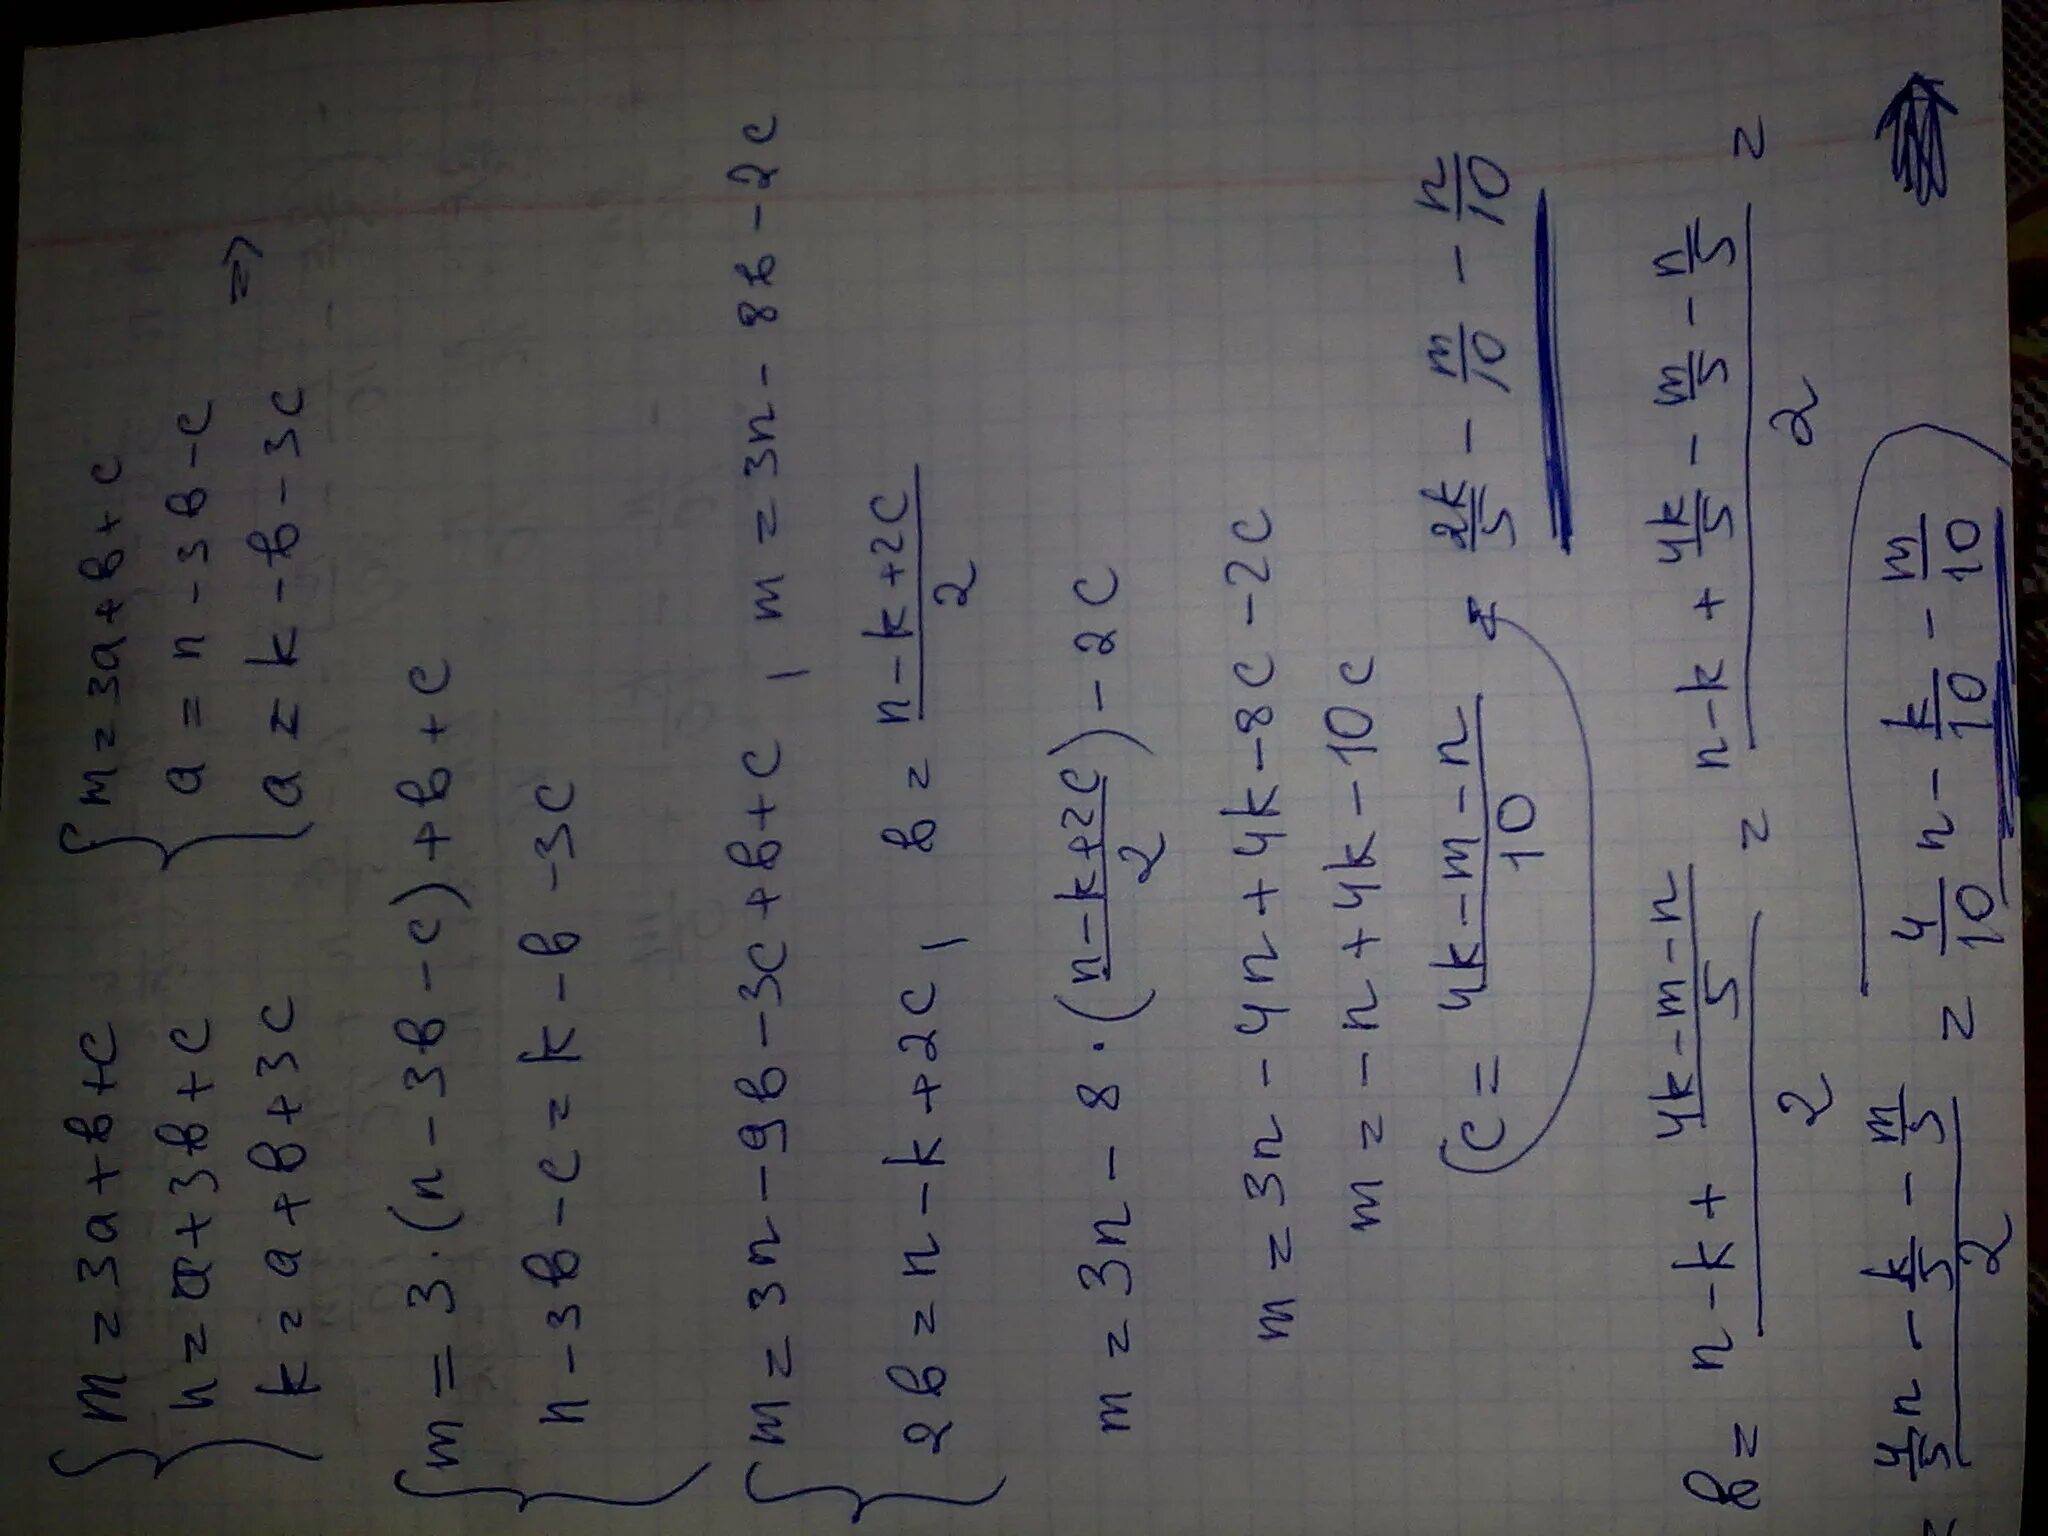 { m = 3a + b + c { m = 3a + b + c
n = a + 3b + c a = n - 3b - c
k = a + b + 3c a = k - b - 3c =>
{ m = 3·(n - 3b - c) + b + c
n - 3b - c = k - b - 3c
{ m = 3n - 9b - 3c + b + c, m = 3n - 8b - 2c
2b = n - k + 2c, b = (n - k + 2c)/2
m = 3n - 8·((n - k + 2c)/2) - 2c
m = 3n - 4n + 4k - 8c - 2c
m = -n + 4k - 10c
c = (4k - m - n)/10 = 2k/5 - m/10 - n/10
b = (n - k + (4k - m - n)/5)/2 = (n - k + 4k/5 - m/5 - n/5)/2 =
= (4/5 n - k/5 - m/5)/2 = 4/10 n - k/10 - m/10